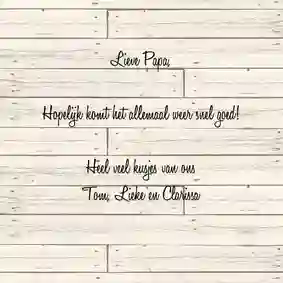 Lieve Papa,
Hopelijk komt het allemaal weer snel goed!
Heel veel kusjes van ons
Tom, Lieke en Clarissa